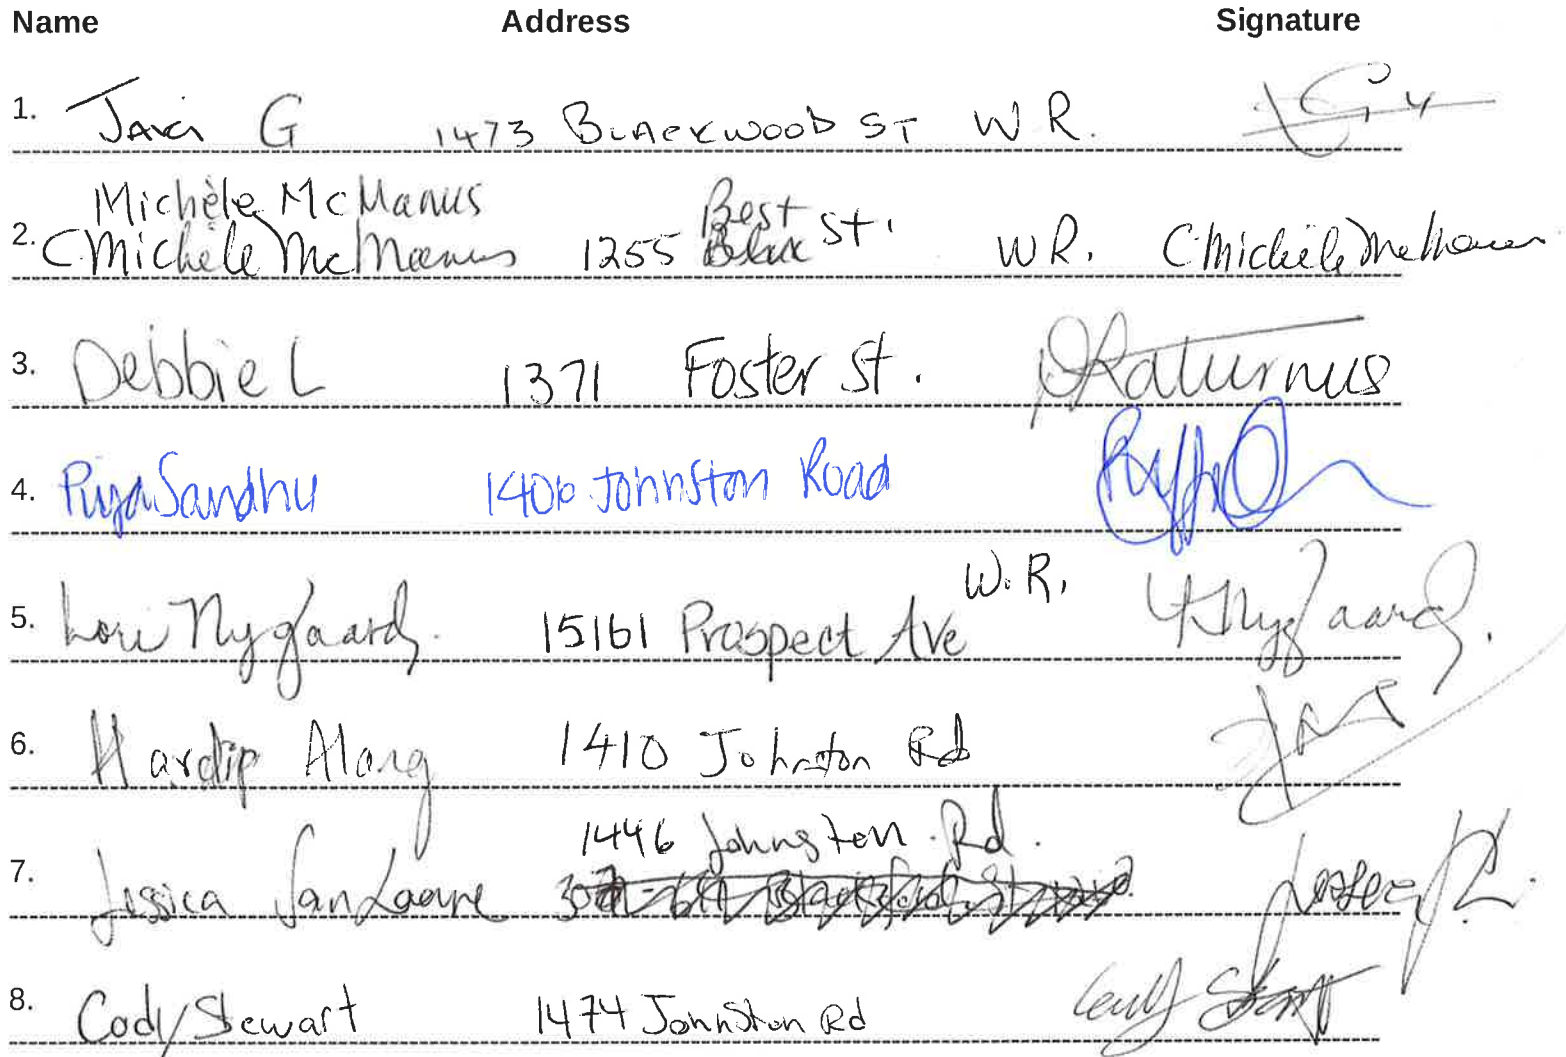 Name Address Signature
1. Javi G 1473 Blackwood St W R.
Michèle McManus Best
2. C Michèle McManus 1255 St. W R. C Michèle McManus
3. Debbie L 1371 Foster St.
4. Priya Sandhu 1406 Johnston Road
W. R,
5. Lori Nygaard 15161 Prospect Ave L Nygaard
6. Hardip Alang 1410 Johnston Rd
1446 Johnston Rd.
7. Jessica
8. Cody Stewart 1474 Johnston Rd